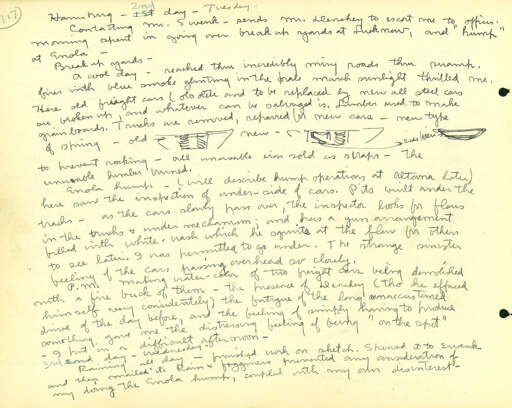 (117)
Harrisburg - 2nd day - Tuesday.
Contacting Mr. Swenk - sends Mr. to escort me to office.
morning spent in going over break up yards at Lucknow, and "hump"
at Enola -
Break up yards -
A cool day - reached thru incredibly miry roads thru swamp.
fires with blue smoke glinting in the pale march sunlight thrilled me.
Here old freight cars (obsolete and to be replaced by new all steel cars
are broken up, and whatever can be salvaged is. Lumber used to make
grain boards. Trucks are removed, repaired for new cars - new type
of spring - old - new -
to prevent rocking - all unusable iron sold as scraps - The
unusable lumber burned.
Enola hump - (will describe hump operations at Altoona later)
here saw the inspection of under-side of cars. Pits built under the
tracks - as the cars slowly pass over, the inspector looks for flaws
in the trucks & under mechanism; and has a gun arrangement
filled with white-wash which he squirts at the flaw for others
to see later. I was permitted to go under. The strange sinister
feeling of the cars passing overhead so closely.
P.m. making water-color of two freight cars being demolished
with a fire back of them - the presence of (tho he effaced
himself very considerately) the fatigue of the long unaccustomed
drive of the day before, and the feeling of simply having to produce
something, gave me the distressing feeling of being "on the spot"
- I put in a difficult afternoon -
3rd day - Wednesday
Raining all day - finished work on sketch. Showed it to Swenk
and then mailed it. Rain & fogginess prevented any consideration of
my doing the Enola hump, coupled with my own disinterest -